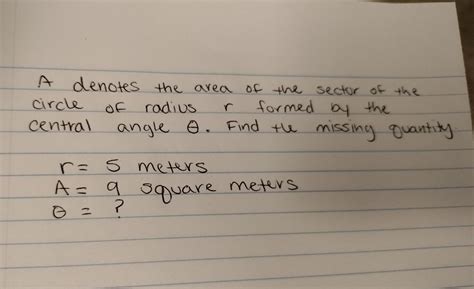 A denotes the area of the sector of the
circle of radius r formed by the
central angle θ. Find the missing quantity
r = 5 meters
A = 9 square meters
θ = ?